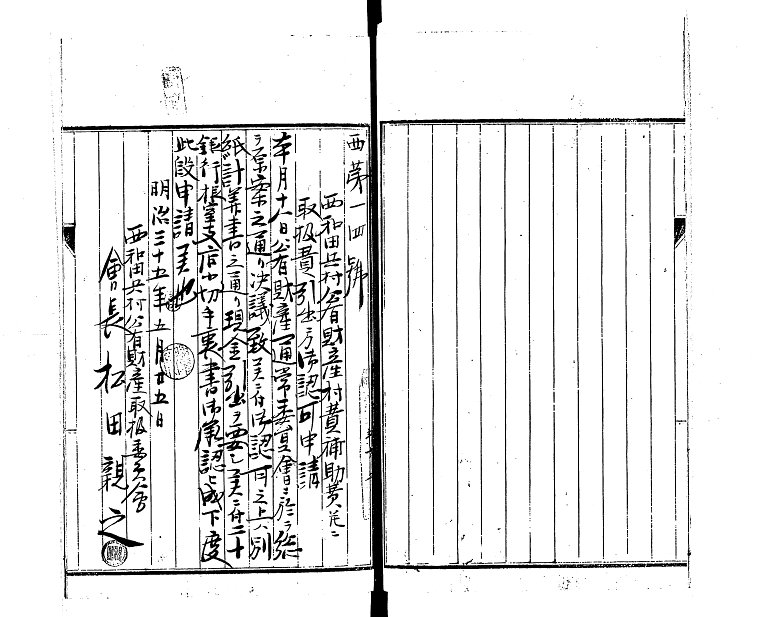 西第一四號
西和田共村公有財産村費補助費并ニ
取扱費引出方御認可申請
本月十八日公有財産通常委員會ニ於テ総
テ原案之通リ決議致候ニ付御認可之上ハ別
紙計算書之通リ現金引出ヲ要シ候ニ付二十
銀行根室支店小切手裏書御承認ヒ成下度
此段申請候也
明治三十五年五月廿五日
西和田共村公有財産取扱委員會
會長 松田親之